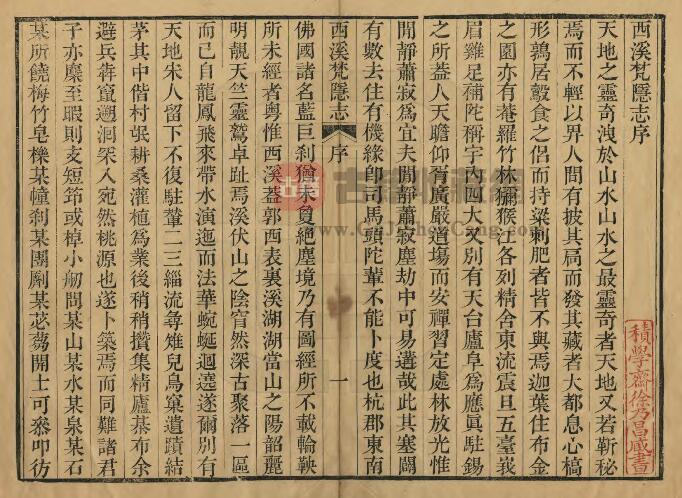 西溪梵隱志序
天地之靈奇洩於山水山水之最靈奇者天地又若靳秘
焉而不輕以畀人間有披其扃而發其藏者大都息心槁
形鶉居鷇食之侶而持梁刺肥者皆不與焉迦葉住布金
之園亦有菴羅竹林獼猴江各列精舍東流震旦五臺峩
眉雞足補陀稱宇內四大又別有天台廬阜為應眞駐錫
之所葢人天瞻仰有廣嚴道場而安禪習定處林放光惟
閒靜蕭寂為宜夫閒靜蕭寂塵劫中可易遘哉此其塞闢
有數去住有機緣卽司馬頭陀輩不能卜度也杭郡東南
西溪梵隱志
序
一
佛國諸名藍巨刹猶未敻絕塵境乃有圖經所不載輪鞅
所未經者粤惟西溪葢郭西表裏溪湖湖當山之陽韶麗
明靚天竺靈鷲卓趾焉溪伏山之陰窅然深古聚落一區
而已自龍鳳飛來帶水演迤而法華蜿蜒迴遶遂爾別有
天地宋人留下不復駐輦二三緇流尋雉兒鳥窠遺蹟結
茅其中偕村氓耕桑灌植為業後稍稍攢集精廬棊布余
避兵犇竄遡洄罙入宛然桃源也遂卜築焉而同難諸君
子亦麋至暇則支短筇或棹小舠問某山某水某泉某石
某所饒梅竹皂櫟某幢刹某團劂某苾蒭開士可叅叩彷
積學齋徐乃昌藏書
古籍
www.GuJiShuCang.com